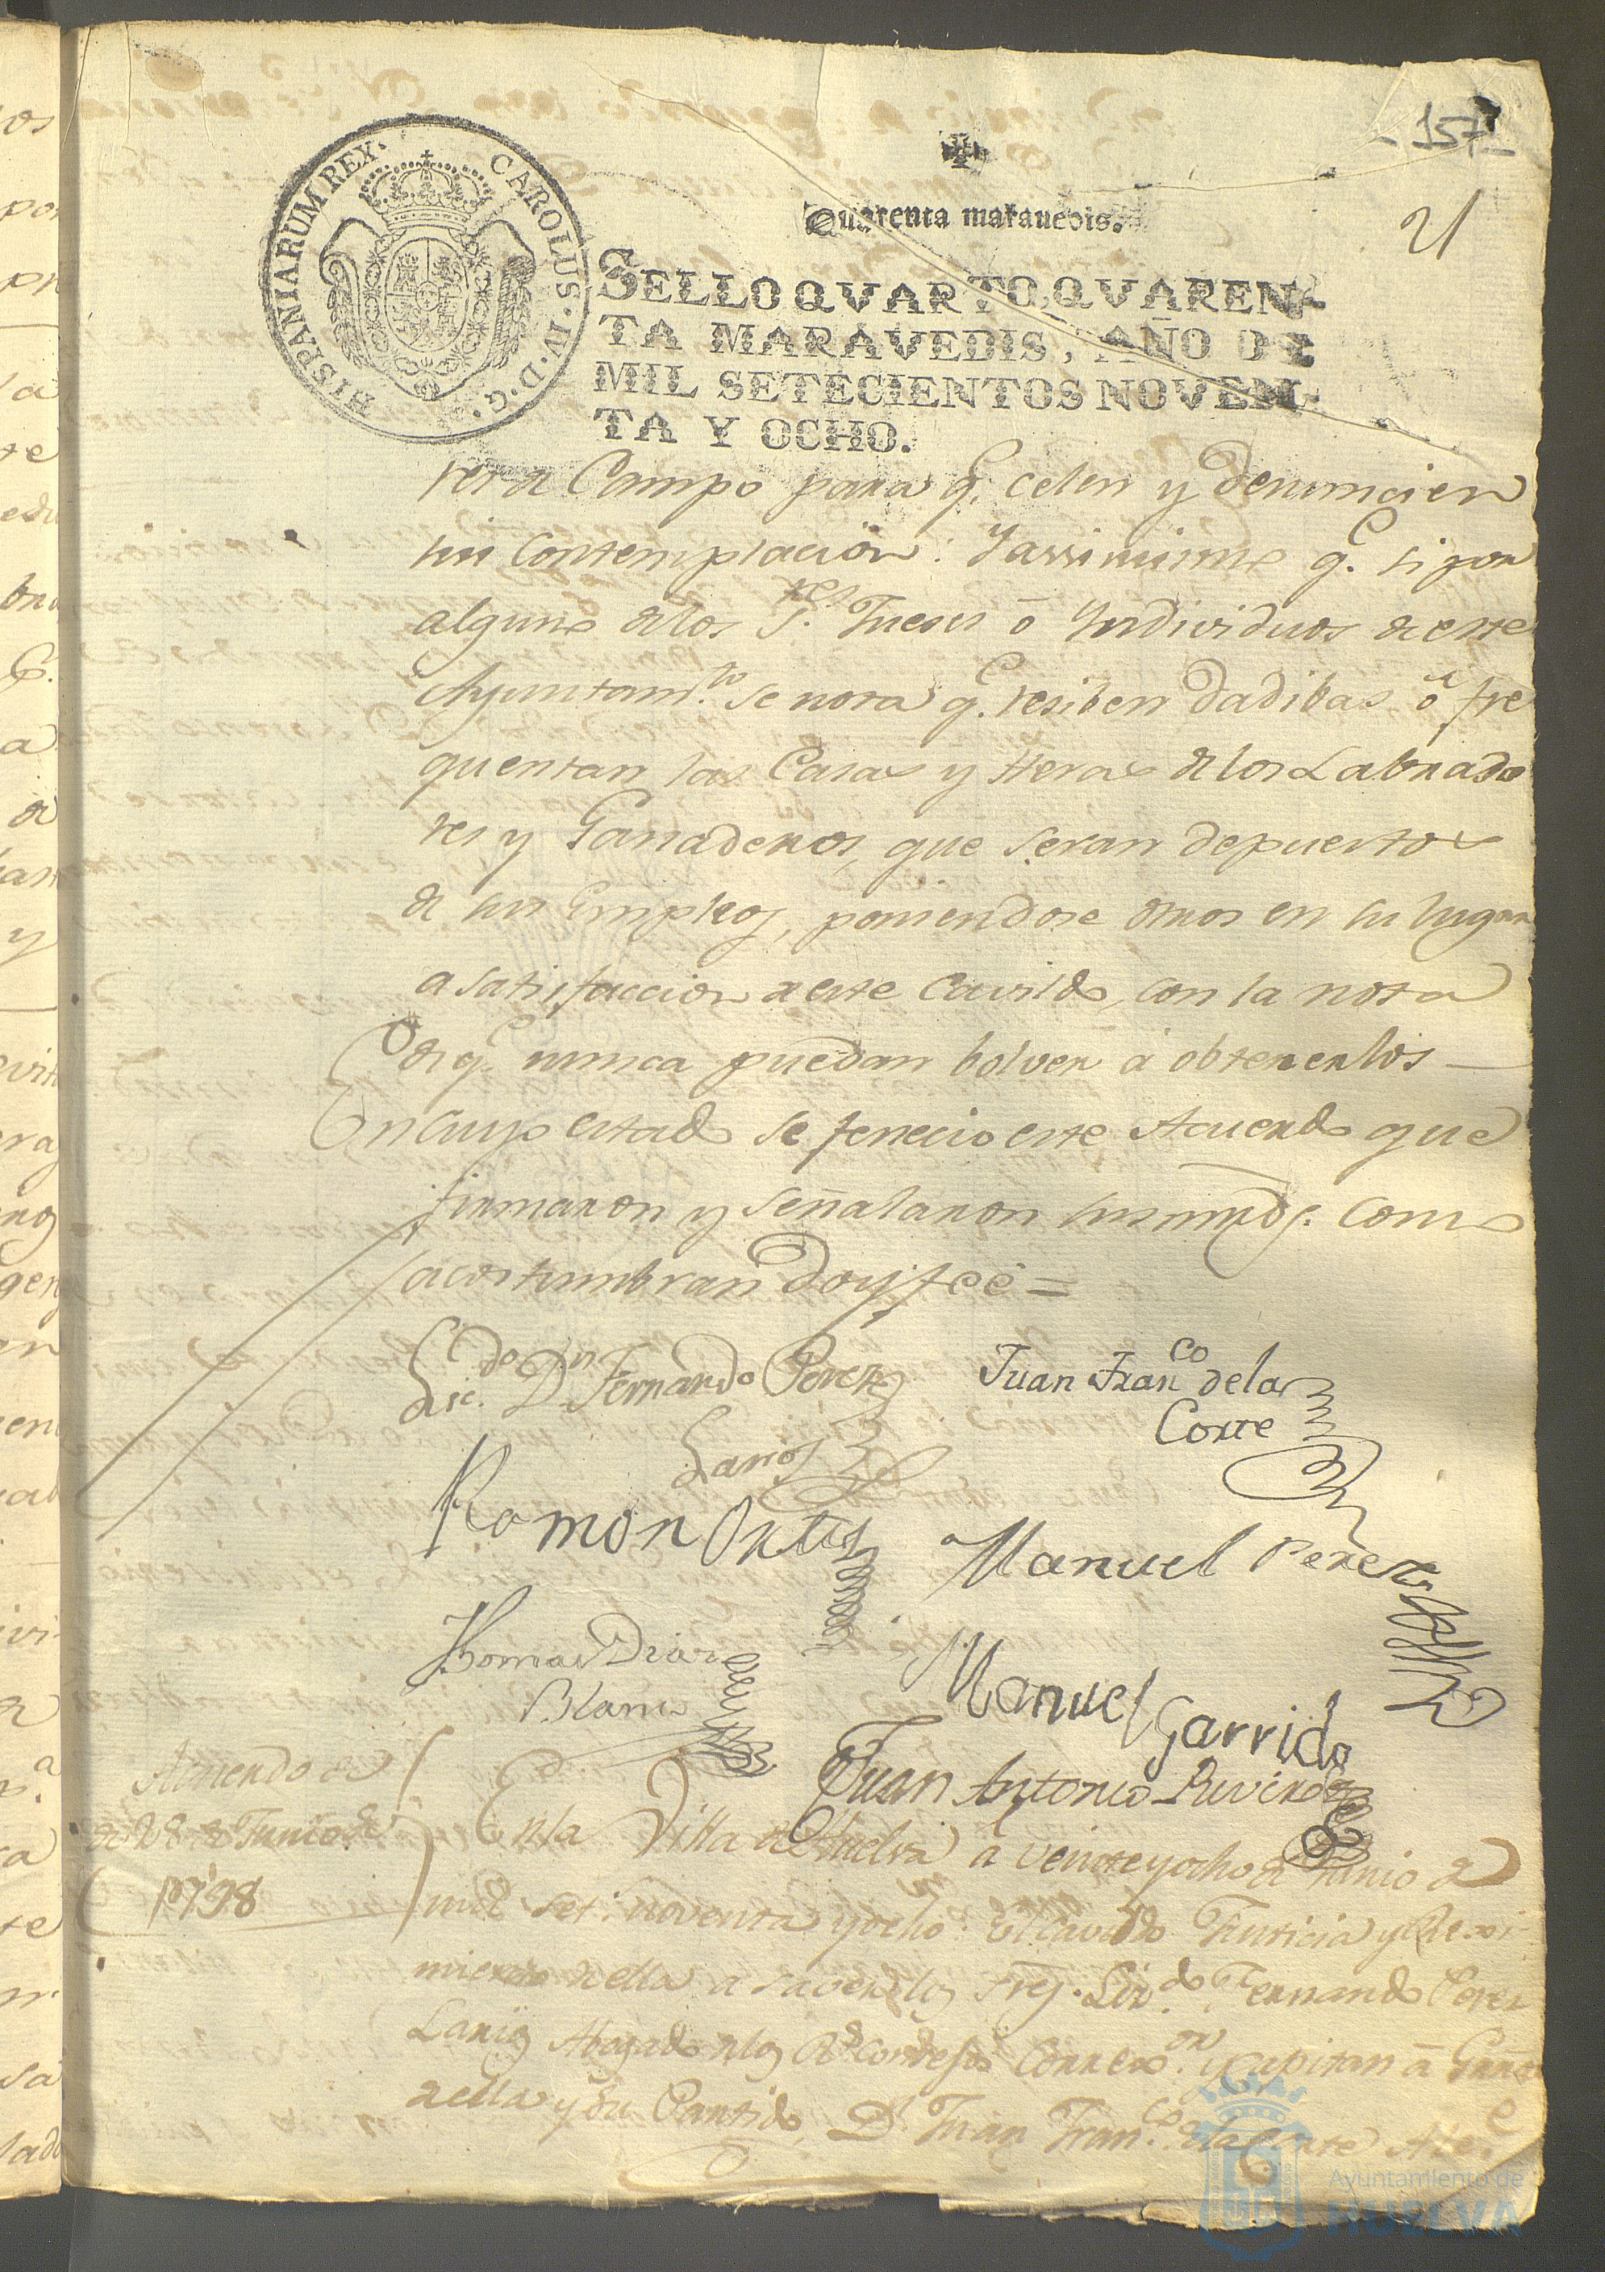 157
21
Quarenta marauedis.
HISPANIARUM REX. CAROLUS. IV. D. G.
SELLO QVARTO, QVAREN-
TA MARAVEDIS, AÑO DE
MIL SETECIENTOS NOVEN-
TA Y OCHO.
res a Campo para q.e celen y denuncien
sin contemplacion: Y assimismo q.e si por
alguno delos S.res Jueses ó Yndividuos de este
Ayuntam.to se nota q.e resiben dadibas ó fre
quentan las Casas y Heras de los Labrado
res y Ganaderos, que seran depuestos
de sus Empleos, poniendose otros en su lugar
a satisfaccion de este Cavildo, con la nota
de q.e nunca puedan bolver á obtenerlos
En cuyo estado se fenecio este Acuerdo que
firmaron y señalaron sus mrds. como
acostumbran Doy fee =
Lic.do D.n Fernando Perez
Larios
Juan Fran.co dela
Corte
Ramon Ortis
Manuel Perez
Thomas Diaz
Blanco
Manuel Garrido
Juan Antonio Rivero
Acuerdo de
de 28 de Junio de
1798
En la Villa de Huelva á veinte y ocho de Junio de
mil set.s noventa y ocho: El Cavildo Justicia y Rexi
miento de ella a saver los Sres. Liz.do Fernando Perez
Larios Abogado de los R.s Consejos Correx.or y Capitan á Guerra
de ella y su Partido, D.n Juan Fran.co de la Corte Alc.e
Ayuntamiento de
HUELVA